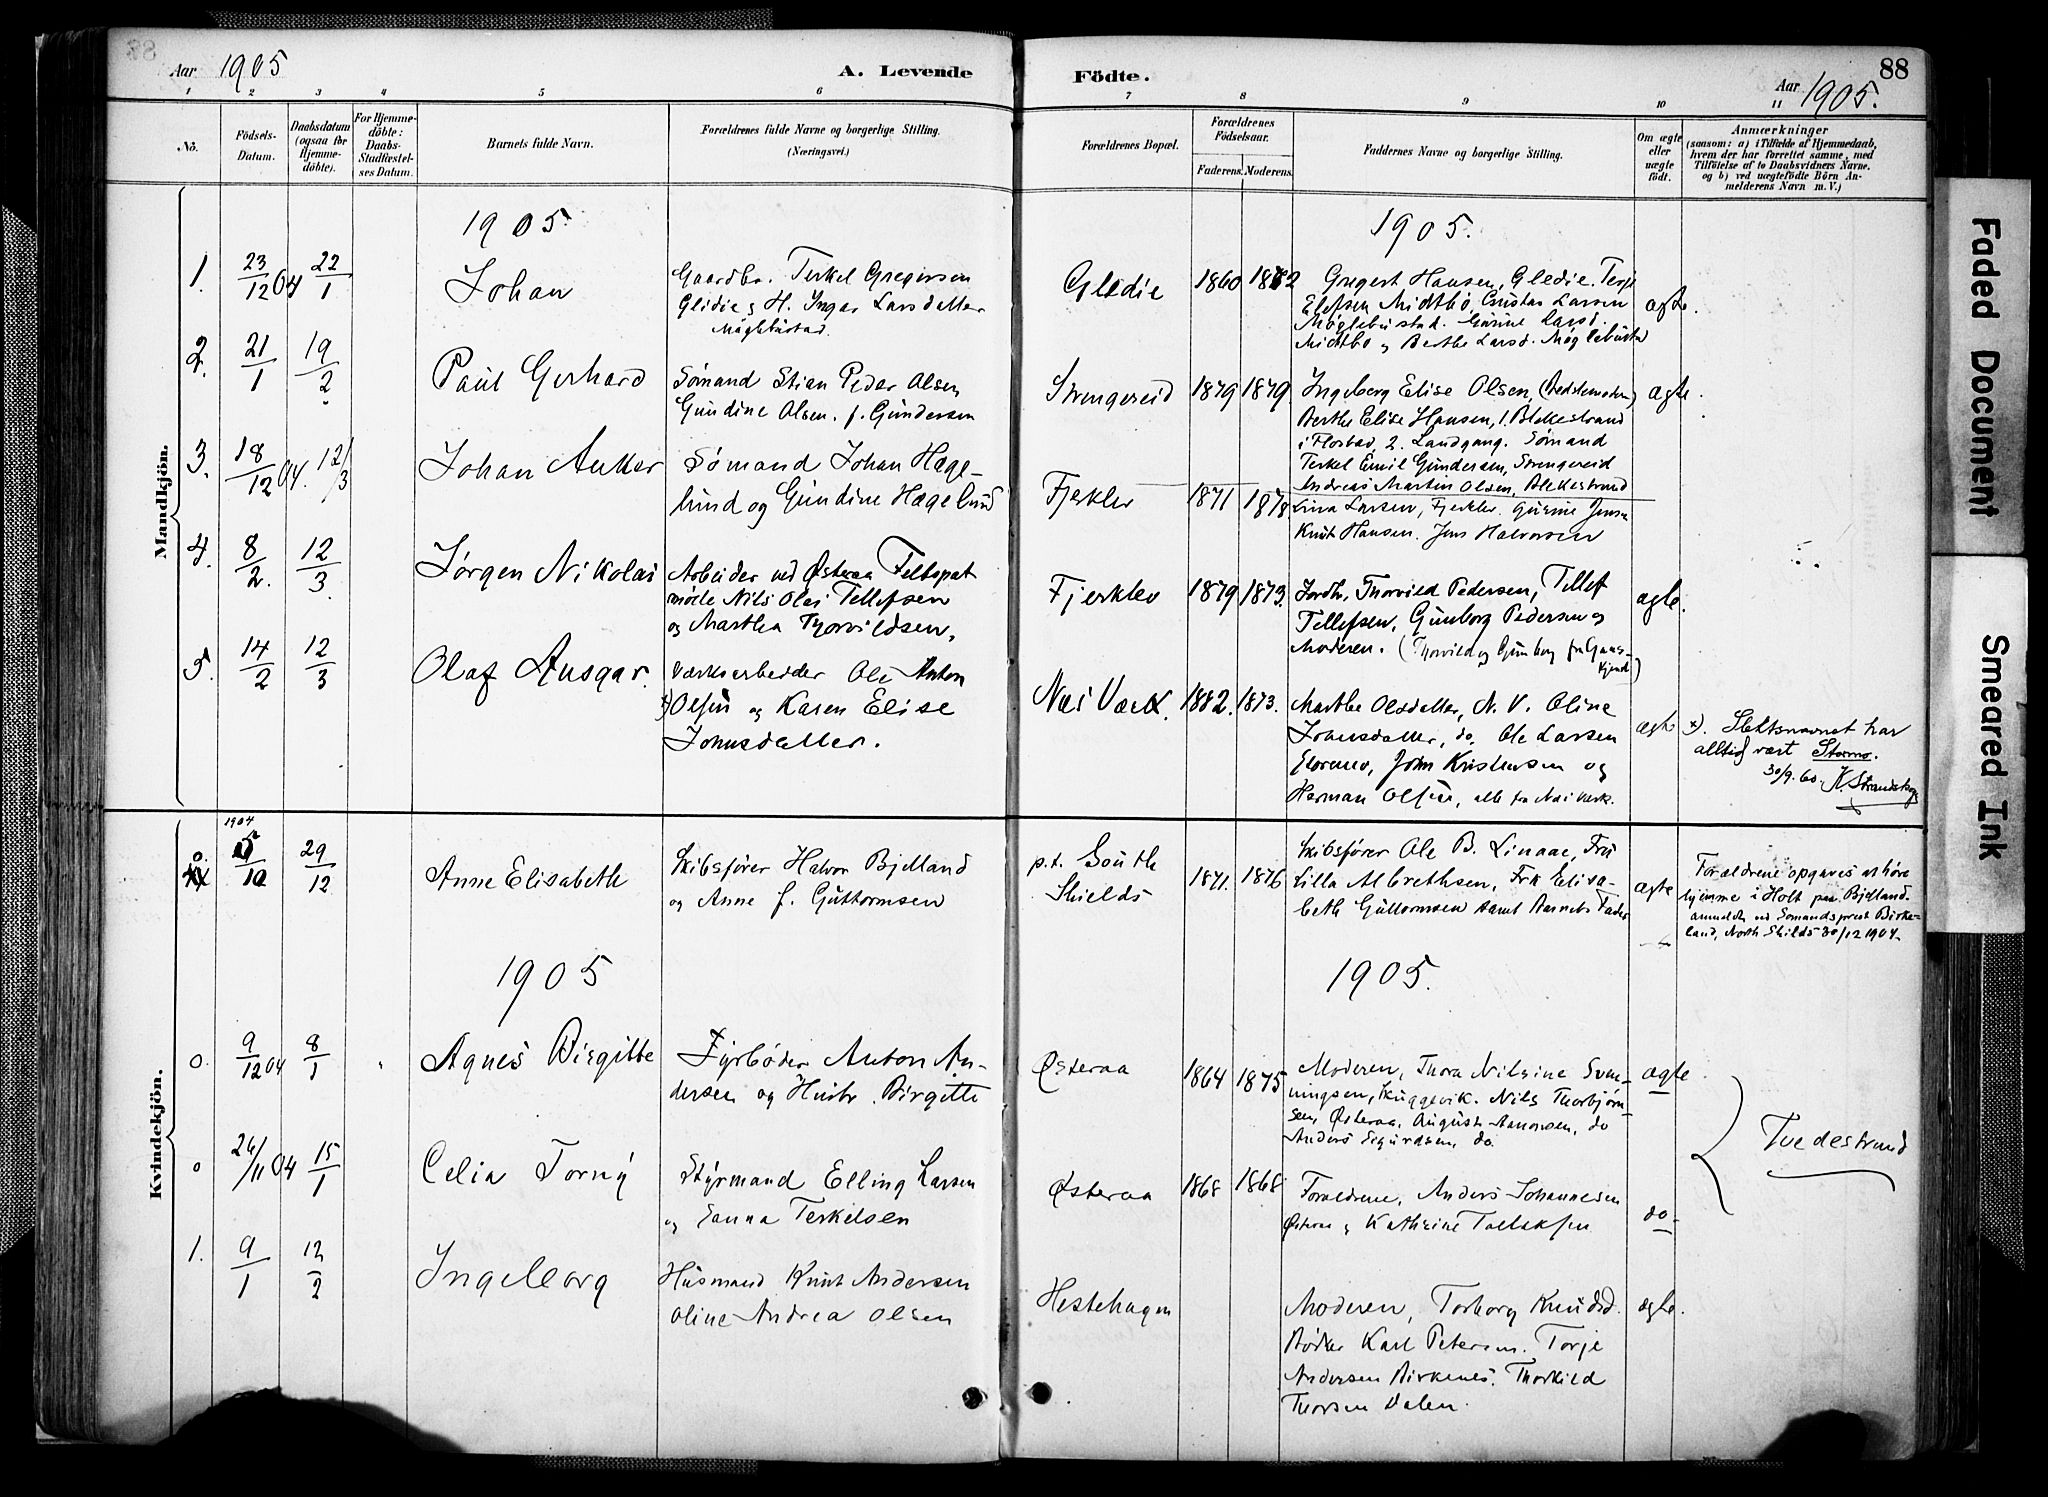 Aar 1905
A. Levende
Födte.
88
Aar 1905.
1 2 3 4 5 6 7 8 9 10 11
No.
Födsels-Datum.
Daabsdatum (ogsaa for Hjemmedöbte).
For Hjemmedöbte: Daabs-Stadfæstelses Datum.
Barnets fulde Navn.
Forældrenes fulde Navne og borgerlige Stilling. (Næringsvei.)
Forældrenes Bopæl.
Forældrenes Födselsaar.
Faderens. Moderens.
Faddernes Navne og borgerlige Stilling.
Om ægte eller uægte födt.
Anmærkninger
(saasom: a) i Tilfælde af Hjemmedaab,
hvem der har forrettet samme, med
Tilföielse af to Daabsvidners Navne.
og b) ved uægtefödte Börn An-
melderens Navn m. V.)
Mandkjön.
1905.
1905.
1. 23/12 04 22/1
Johan
Gaardbr. Terkel Gregersen
Glidie & H. Inger Larsdatter
Møglebustad.
Gledie
1860 1882
Gregert Hansen, Gledie. Terje
Elefsen Midtbø Gustav Larsen
Møglebustad. Gurine Larsd.
Midtbø og Berthe Larsd. Møglebustad
ægte.
2. 21/1 19/2
Paul Gerhard
Sømand Stian Peder Olsen
Gundine Olsen. f. Gundersen
Strengereid
1879 1879
Ingeborg Elise Olsen, (Bedstemoder)
Berthe Elise Hansen, 1. Blekestrand
i Flosta, 2. Landgang. Sømand
Terkel Emil Gundersen, Strengereid
Andreas Martin Olsen, Blekestrand
ægte.
3. 18/12 04. 12/3
Johan Anker
Sømand Johan Hæge-
lund og Gundine Hægelund
Fjerklev
1871 1878
Lina Larsen, Fjerklev. Gurine Jensen
Knut Hansen. Jens Halvorsen
4. 8/2. 12/3.
Jørgen Nikolai
Arbeider ved Østeraa Feltspat
mølle Nils Olai Tellefsen
og Martha Thorvildsen.
Fjerklev
1879 1873.
Jordbr. Thorvild Pedersen, Tellef
Tellefsen, Gunborg Pedersen og
Moderen. (Thorvild og Gunborg fra
ægte.
5. 14/2 12/3
Olaf Ansgar.
Værksarbeider Ole Anton
x) Olsen og Karen Elise
Johnsdatter.
Næs Værk.
1882. 1873.
Marthe Olsdatter, N. V. Oline
Johnsdatter, do. Ole Larsen
John Kristensen og
Herman Olsen, alle fra Næs Verk.
ægte
x). Slektsnavnet har
alltid vært Stormo.
30/9. 60. K. Strandskog
Kvindekjön.
0. 1904 5/10 29/12
Anne Elisabeth
Skibsfører Halvor Bjelland
og Anne f. Guttormsen
p.t. South
Shields
1871. 1876
Skibsfører Ole B. Linaae, Fru
Lilla Albrethsen, Frk Elisa-
beth Guttormsen samt Barnets Fader
ægte
Forældrene opgaves at høre
hjemme i Holt paa Bjelland.
anmeldt ved Sømandsprest Birke-
land, North Shilds 30/12 1904.
1905
1905.
0. 9/12 04 8/1
Agnes Birgitte
Fyrbøder Anton An-
dersen og Hustr. Birgitte
Østeraa
1864 1875
Moderen, Thora Nilsine Svem-
ningsen, Skuggevik. Nils Thorbjørn-
sen, Østeraa, August Aanonsen, do
Anders Sigurdsen, do.
ægte
Tvedestrand
0 26/11 04 15/1
Celia Torny
Styrmand Elling Larsen
og Janna Terkelsen
Østeraa
1868 1868
Forældrene, Anders Johannesen
Østeraa & Kathrine Tallaksen
do-
1. 9/1 12/2
Ingeborg
Husmand Knut Andersen
Oline Andrea Olsen
Hestehagen
Moderen, Torborg Knudsd.
Bødker Karl Petersen. Torje
Andersen Birkenes. Thorkild
Thorsen Dalen.
ægte.
Faded Document
Smeared Ink